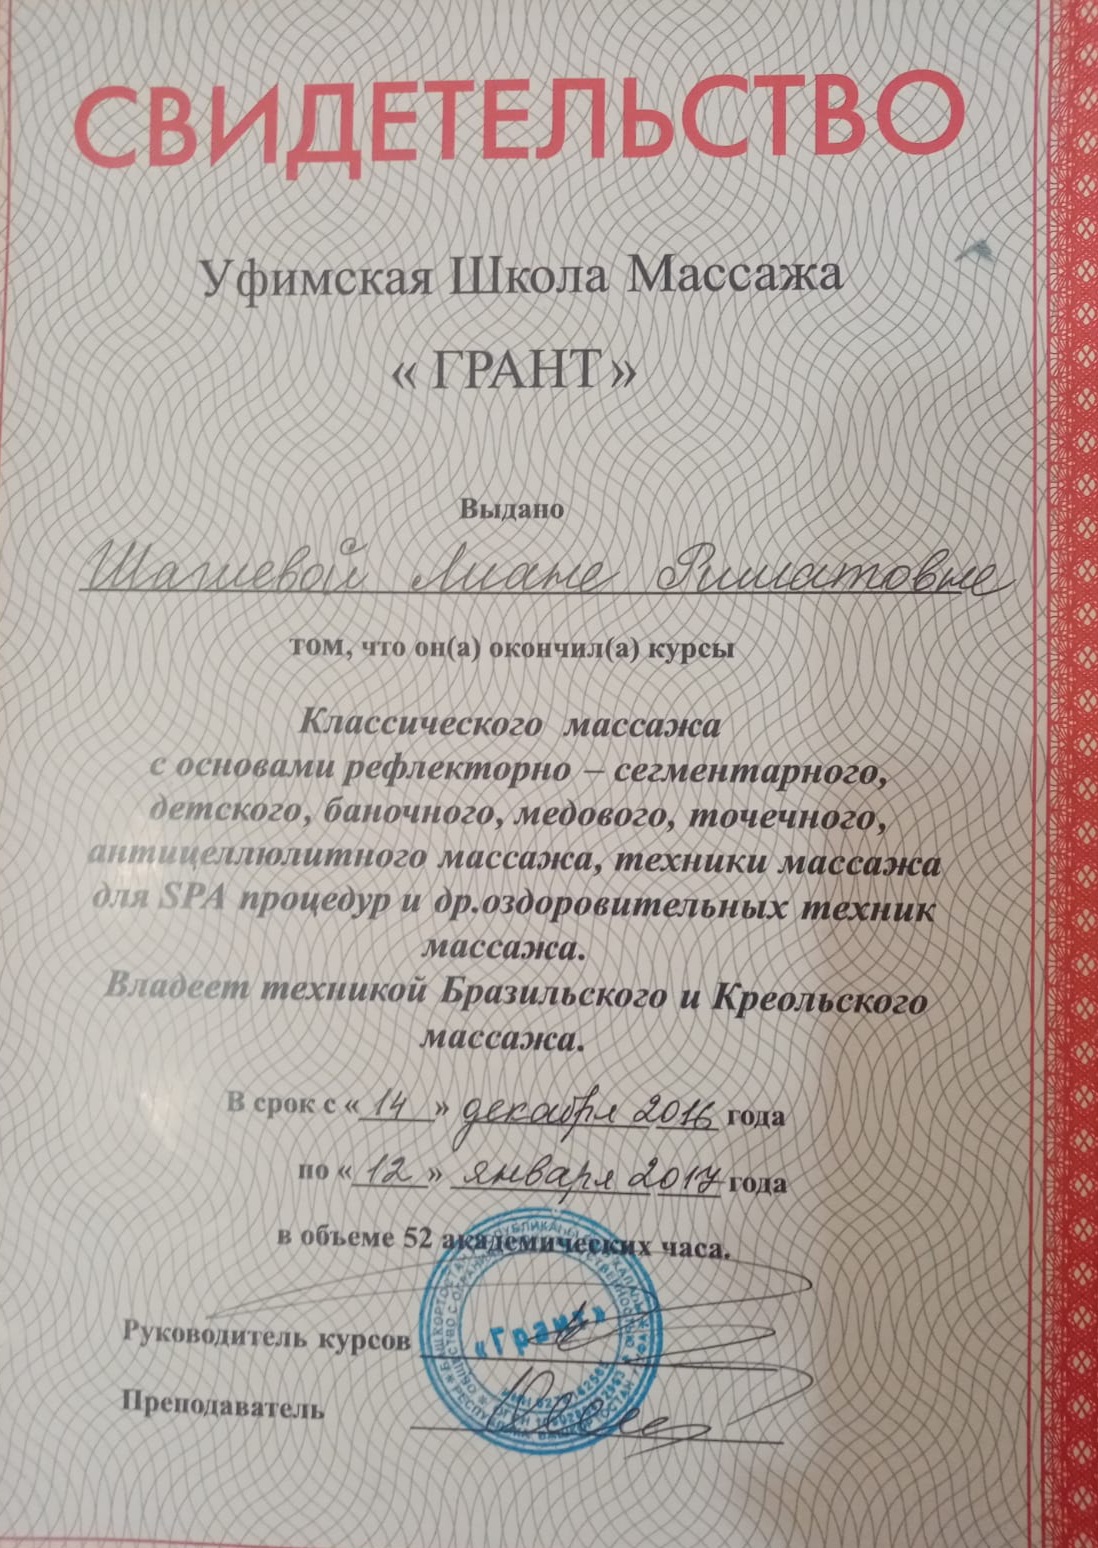 СВИДЕТЕЛЬСТВО
Уфимская Школа Массажа
« ГРАНТ»
Выдано
Шагиевой Лиане Ришатовне
том, что он(а) окончил(а) курсы
Классического массажа
с основами рефлекторно – сегментарного,
детского, баночного, медового, точечного,
антицеллюлитного массажа, техники массажа
для SPA процедур и др.оздоровительных техник
массажа.
Владеет техникой Бразильского и Креольского
массажа.
В срок с « 14 » декабря 2016 года
по « 12 » января 2017 года
в объеме 52 академических часа.
Руководитель курсов
«Грант»
Преподаватель